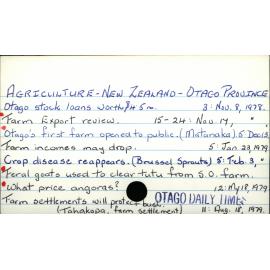 AGRICULTURE - NEW ZEALAND - OTAGO PROVINCE
Otago stock loans worth $4.5m. 3: Nov. 8, 1978.
Farm Export review. 15-24: Nov. 14, "
Otago's first farm opened to public. (Matanaka). 5: Dec 13
Farm incomes may drop. 5: Jan 23, 1979
Crop disease reappears. (Brussel Sprouts) 5: Feb. 3, "
Feral goats used to clear tutu from S.O. farm.
What price angoras? 12: My 18, 1979
Farm settlements will protect bush. OTAGO DAILY TIMES
(Tahakopa, farm settlement) 11: Aug. 18, 1979.